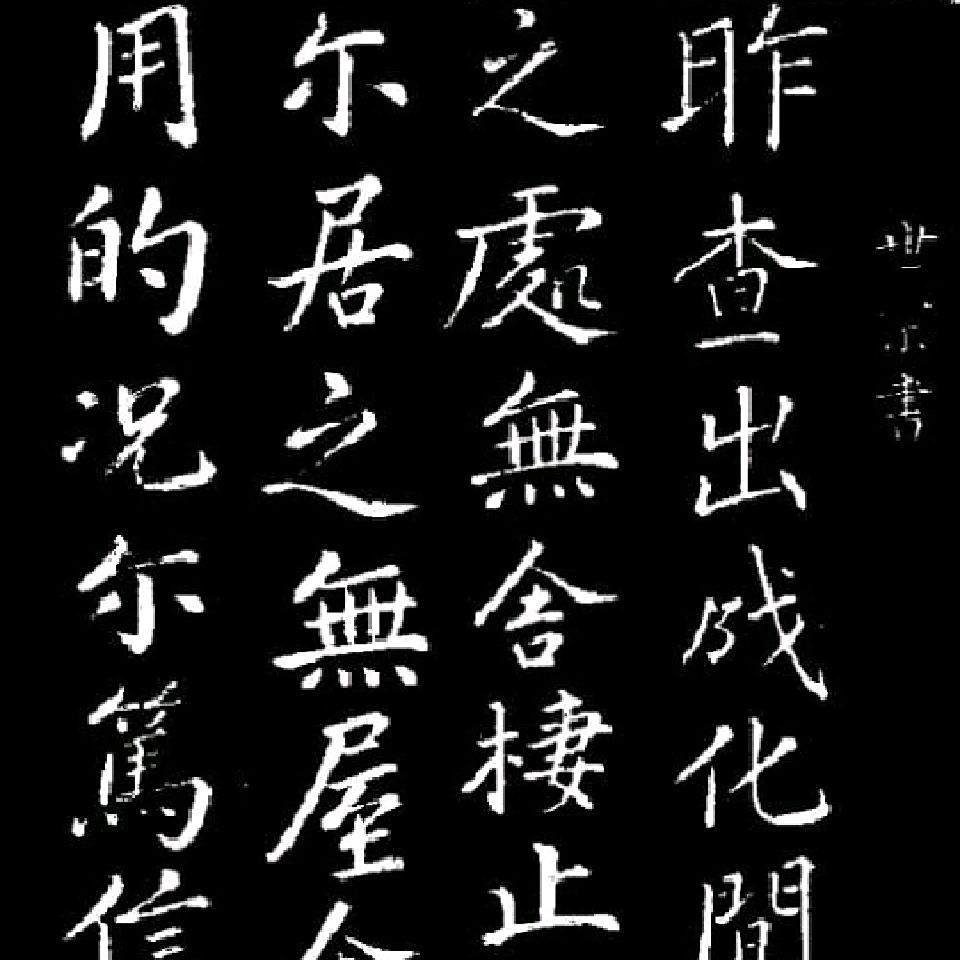 世宗書
昨查出成化間
之處無舍棲止
尓居之無屋舍
用的况尓篤信